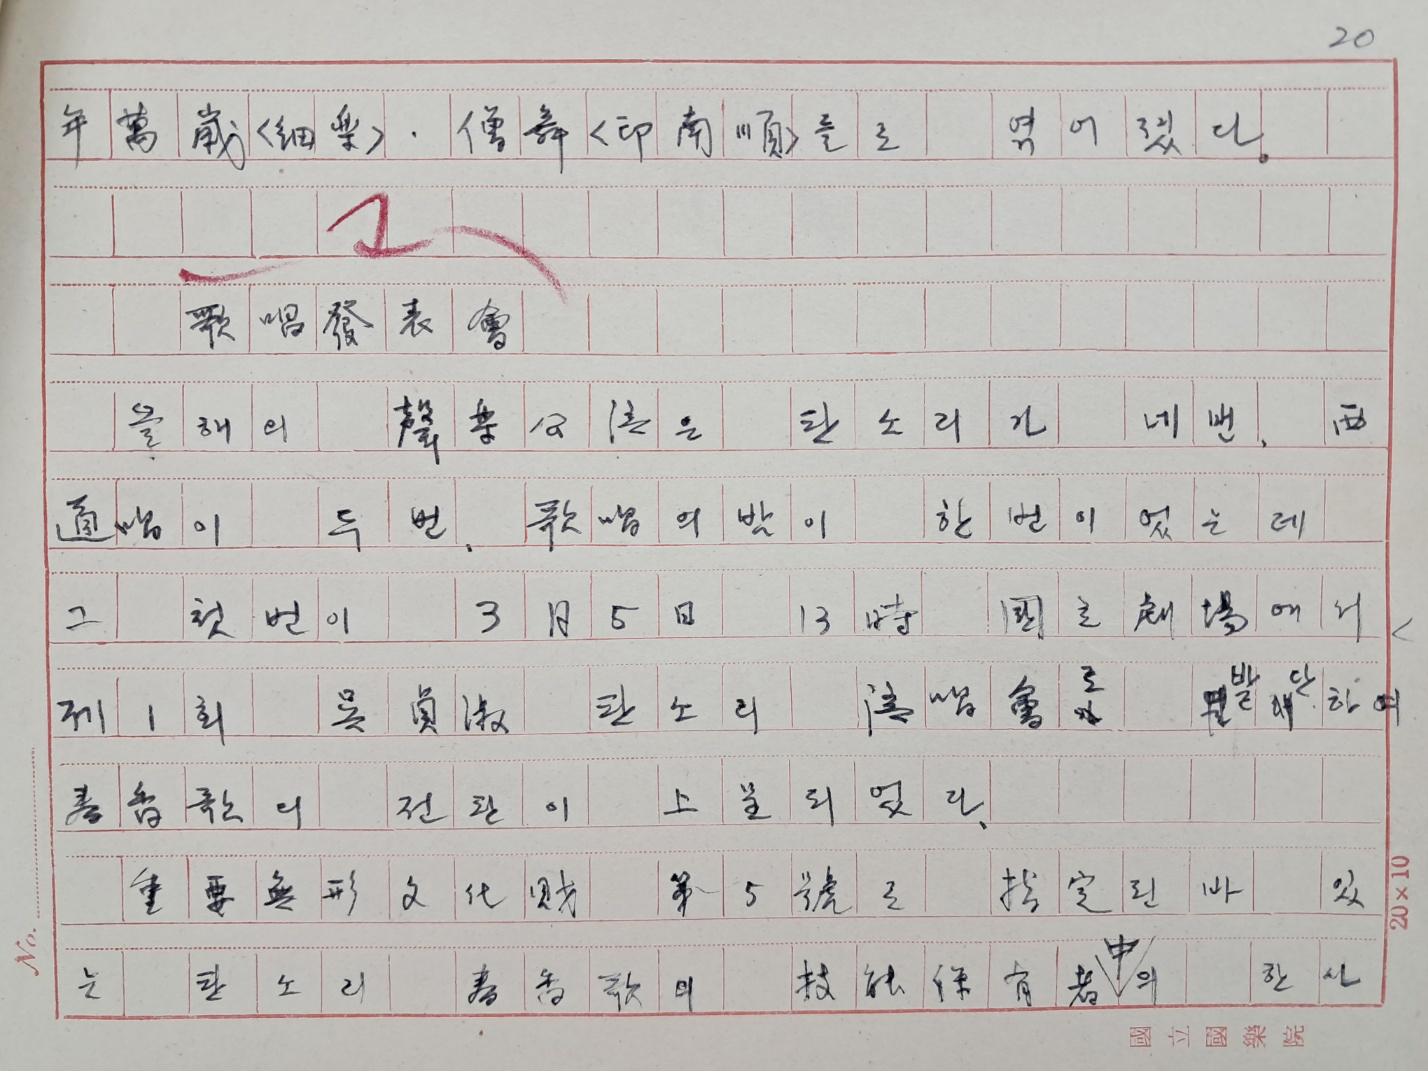 20
年萬歲<細樂>. 僧舞<印南順>들로 엮어졌다.
고
歌唱發表會
올해의 聲楽公演은 판소리가 네번, 西
道唱이 두번, 歌唱의밤이 한번이었는데
그 첫번이 3月5日 13時 国立劇場에서
제1회 吳貞淑 판소리 演唱會로 발단하여
春香歌의 전판이 上呈되었다.
重要無形文化財 第5號로 指定된바 있
는 판소리 春香歌의 技能保有者中의 한사
No.
20×10
國立國樂院